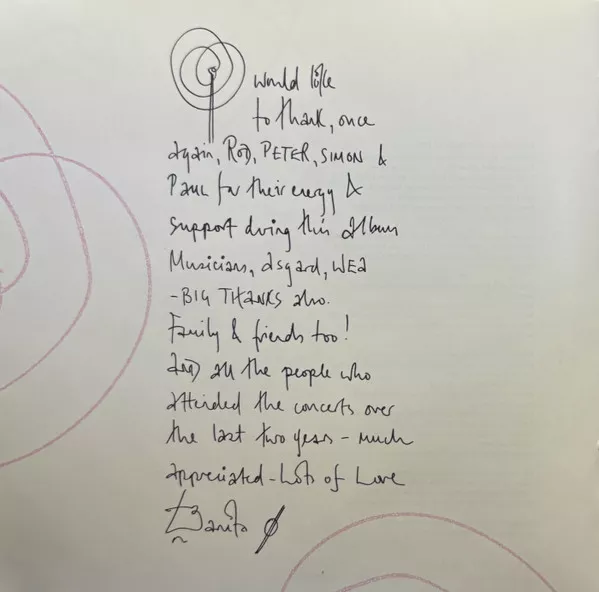 would like
to thank, once
again, ROD, PETER, SIMON &
PAUL for their energy &
support during this album
Musicians, Asgard, WEA
-BIG THANKS also.
Family & friends too!
AND all the people who
attended the concerts over
the last two years - much
appreciated - Lots of Love
Tanita